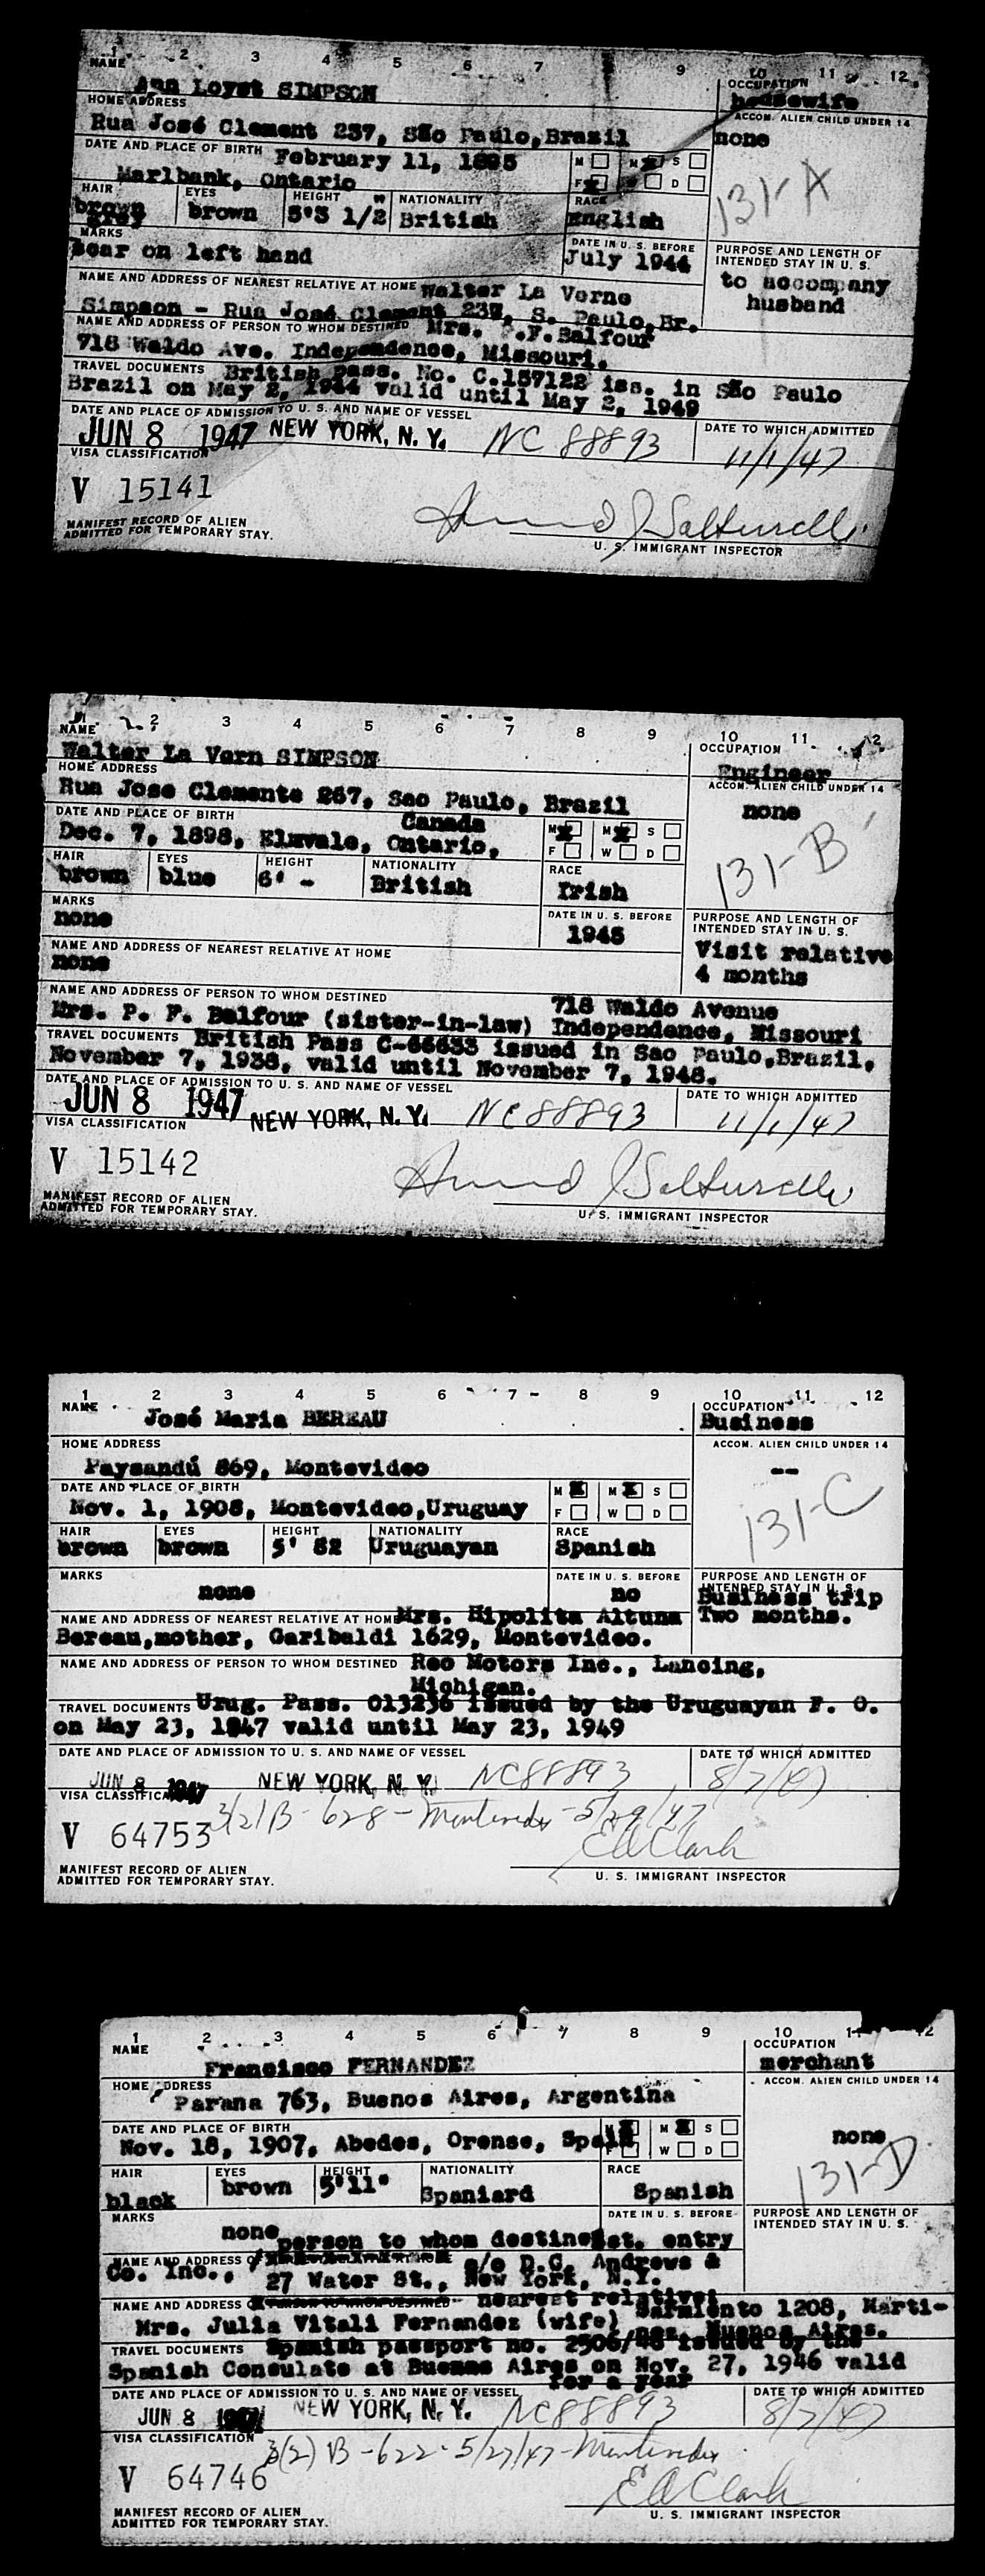 1 2 3 4 5 6 7 8 9 10 11 12
NAME
Ann Loyst SIMPSON
OCCUPATION
housewife
HOME ADDRESS
Rua José Clement 237, São Paulo, Brazil
ACCOM. ALIEN CHILD UNDER 14
none
DATE AND PLACE OF BIRTH February 11, 1895
Marlbank, Ontario
M M S
F D
131-A
HAIR EYES HEIGHT NATIONALITY RACE
brown grey brown 5'3 1/2" British English
MARKS
Scar on left hand
DATE IN U. S. BEFORE
July 1944
PURPOSE AND LENGTH OF INTENDED STAY IN U. S.
to accompany husband
NAME AND ADDRESS OF NEAREST RELATIVE AT HOME Walter La Verne
Simpson - Rua José Clement 237, S. Paulo, Br.
NAME AND ADDRESS OF PERSON TO WHOM DESTINED Mrs. .F. Balfour
718 Waldo Ave. Independence, Missouri.
TRAVEL DOCUMENTS British pass. No. C.157122 iss. in São Paulo
Brazil on May 2, 1944 valid until May 2, 1949
DATE AND PLACE OF ADMISSION TO U. S. AND NAME OF VESSEL
DATE TO WHICH ADMITTED
JUN 8 1947 NEW YORK, N. Y. NC 88893 11/1/47
VISA CLASSIFICATION
V 15141
MANIFEST RECORD OF ALIEN
ADMITTED FOR TEMPORARY STAY.
U. S. IMMIGRANT INSPECTOR
1 2 3 4 5 6 7 8 9 10 11 12
NAME
Walter La Vern SIMPSON
OCCUPATION
Engineer
HOME ADDRESS
Rua Jose Clemente 267, Sao Paulo, Brazil
ACCOM. ALIEN CHILD UNDER 14
none
DATE AND PLACE OF BIRTH Canada
Dec. 7, 1898, Elmvale, Ontario,
M M S
F W D
131-B
HAIR EYES HEIGHT NATIONALITY RACE
brown blue 6' - British Irish
MARKS
none
DATE IN U. S. BEFORE
1945
PURPOSE AND LENGTH OF INTENDED STAY IN U. S.
Visit relative
4 months
NAME AND ADDRESS OF NEAREST RELATIVE AT HOME
none
NAME AND ADDRESS OF PERSON TO WHOM DESTINED 718 Waldo Avenue
Mrs. P. F. Balfour (sister-in-law) Independence, Missouri
TRAVEL DOCUMENTS British Pass C-66633 issued in Sao Paulo, Brazil,
November 7, 1938, valid until November 7, 1948.
DATE AND PLACE OF ADMISSION TO U. S. AND NAME OF VESSEL
DATE TO WHICH ADMITTED
JUN 8 1947 NEW YORK, N. Y. NC88893 11/1/47
VISA CLASSIFICATION
V 15142
MANIFEST RECORD OF ALIEN
ADMITTED FOR TEMPORARY STAY.
U. S. IMMIGRANT INSPECTOR
1 2 3 4 5 6 7 8 9 10 11 12
NAME
José Maria BEREAU
OCCUPATION
Business
HOME ADDRESS
Paysandú 869, Montevideo
ACCOM. ALIEN CHILD UNDER 14
--
DATE AND PLACE OF BIRTH
Nov. 1, 1908, Montevideo, Uruguay
M M S
F W D
131-C
HAIR EYES HEIGHT NATIONALITY RACE
brown brown 5' 82 Uruguayan Spanish
MARKS
none
DATE IN U. S. BEFORE
no
PURPOSE AND LENGTH OF INTENDED STAY IN U. S.
Business trip
Two months.
NAME AND ADDRESS OF NEAREST RELATIVE AT HOME Mrs. Hipolita Altuna
Bereau, mother, Garibaldi 1629, Montevideo.
NAME AND ADDRESS OF PERSON TO WHOM DESTINED Reo Motors Inc., Lancing,
Michigan.
TRAVEL DOCUMENTS Urug. Pass. 013236 issued by the Uruguayan F. O.
on May 23, 1947 valid until May 23, 1949
DATE AND PLACE OF ADMISSION TO U. S. AND NAME OF VESSEL
DATE TO WHICH ADMITTED
JUN 8 1947 NEW YORK, N. Y. NC88893 8/7/47
VISA CLASSIFICATION
3/2/B - 628 - Montevideo - 5/29/47
V 64753
EA Clark
MANIFEST RECORD OF ALIEN
ADMITTED FOR TEMPORARY STAY.
U. S. IMMIGRANT INSPECTOR
1 2 3 4 5 6 7 8 9 10 11 12
NAME
Francisco FERNANDEZ
OCCUPATION
merchant
HOME ADDRESS
Parana 763, Buenos Aires, Argentina
ACCOM. ALIEN CHILD UNDER 14
none
DATE AND PLACE OF BIRTH
Nov. 18, 1907, Abedes, Orense, Spain
M M S
F W D
131-D
HAIR EYES HEIGHT NATIONALITY RACE
black brown 5'11" Spaniard Spanish
MARKS
none
DATE IN U. S. BEFORE
st. entry
PURPOSE AND LENGTH OF INTENDED STAY IN U. S.
person to whom destined
NAME AND ADDRESS OF c/o D.C. Andrews &
Co. Inc., 27 Water St., New York, N.Y.
NAME AND ADDRESS OF nearest relative:
Mrs. Julia Vitali Fernandez (wife) Sarmiento 1208, Marti-
nez, Buenos Aires.
TRAVEL DOCUMENTS Spanish passport no. 2506/46 issued by the
Spanish Consulate at Buenos Aires on Nov. 27, 1946 valid
for a year
DATE AND PLACE OF ADMISSION TO U. S. AND NAME OF VESSEL
DATE TO WHICH ADMITTED
JUN 8 1947 NEW YORK, N. Y. NC88893 8/7/47
VISA CLASSIFICATION
3(2) B - 622 - 5/27/47 - Montevideo
V 64746
EA Clark
MANIFEST RECORD OF ALIEN
ADMITTED FOR TEMPORARY STAY.
U. S. IMMIGRANT INSPECTOR